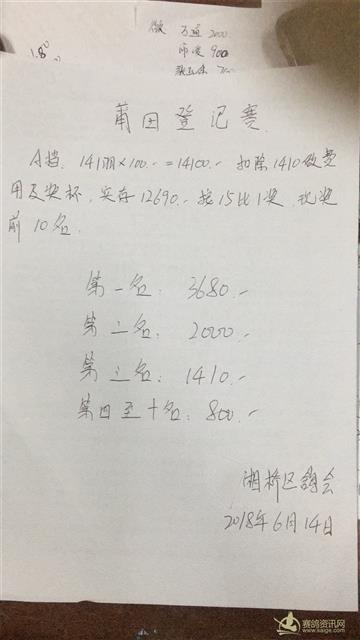 微 万通 2000
1.8°
币安 900
莆田登记赛
A档. 141羽×100.-=14100.- 扣除1410做费
用及奖杯,实存12690.- 按15比1奖,现奖
前10名.
第一名: 3680.-
第二名: 2000.-
第三名: 1410.-
第四至十名: 800.-
湘桥区鸽会
2018年6月14日
赛鸽资讯网
www.saige.com